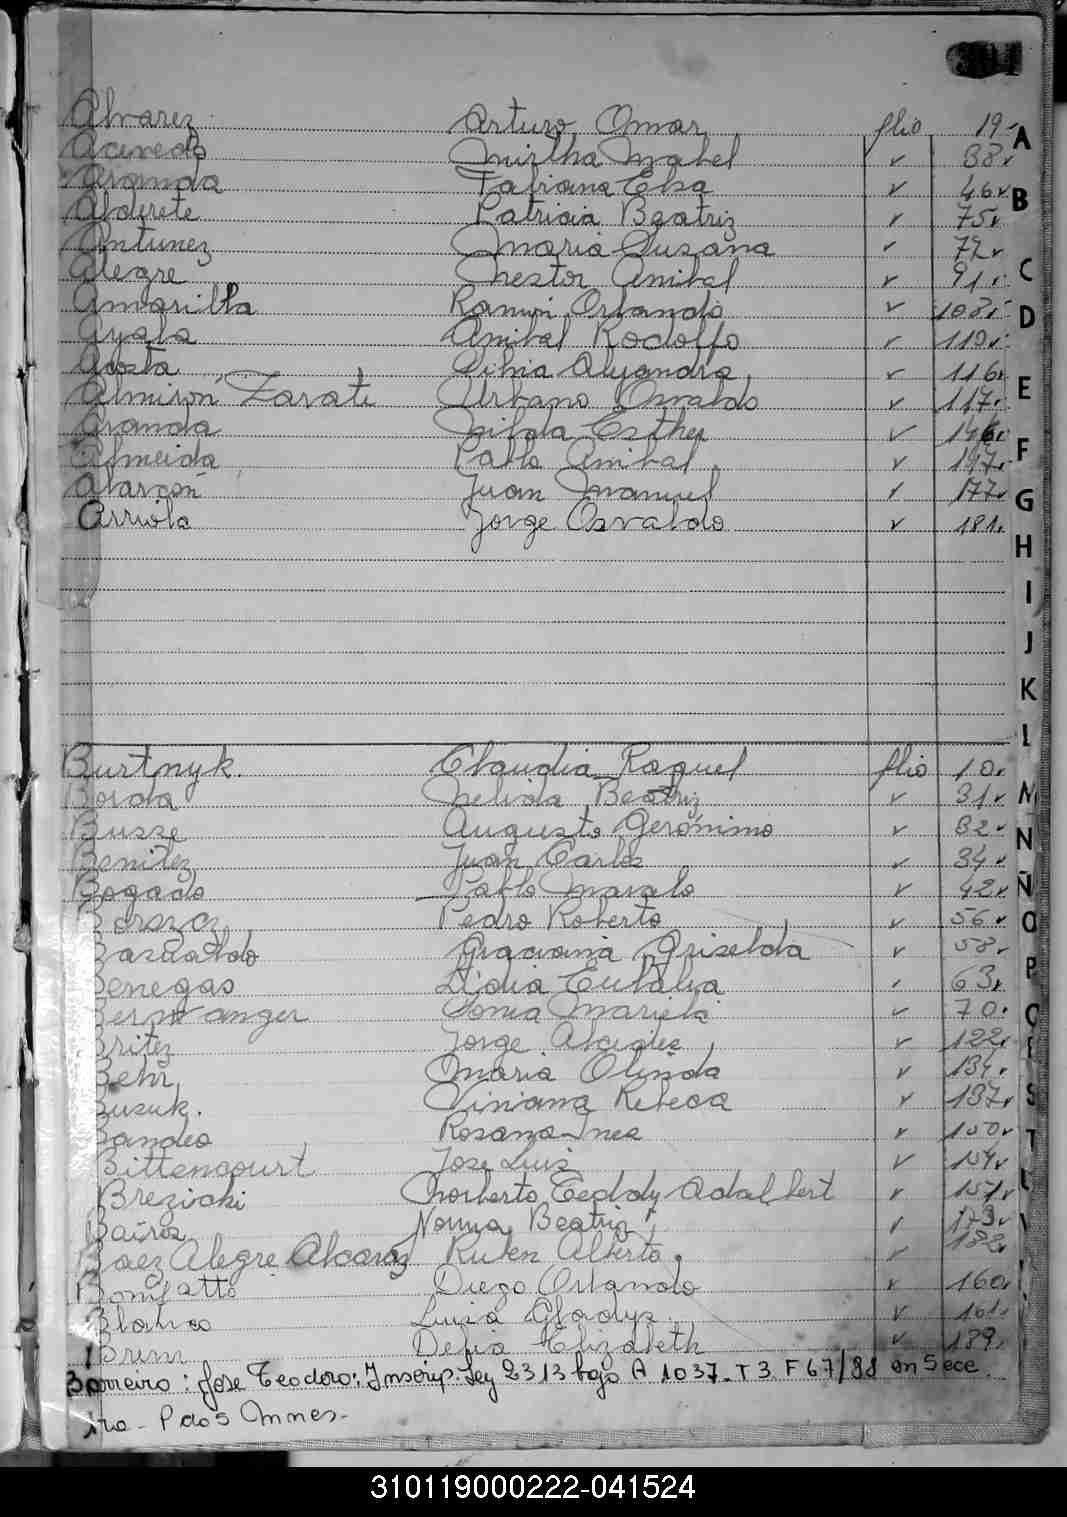 Alvarez Arturo Omar folio 19
Acevedo Mirtha Mabel 38
Aranda Tatiana Elsa 46
Alderete Patricia Beatriz 75
Antunez Maria Susana 72
Alegre Nestor Anibal 91
Amarilla Ramon Orlando 108
Ayala Anibal Rodolfo 110
Acosta Silvia Alejandra 116
Almirón Zarate Urbano Osvaldo 117
Aranda Nilda Esther 146
Almeida Pablo Anibal 147
Alarcón Juan Manuel 177
Arriola Jorge Osvaldo 181
Burtnyk. Claudia Raquel folio 10
Borda Nelida Beatriz 31
Busse Augusto Gerónimo 32
Benitez Juan Carlos 34
Bogado Pablo 42
Pedro Roberto 56
Basualdo Graciana Griselda 58
Benegas Lidia Eulalia 63
Bernwanger Sonia Mariela 70
Britez Jorge Alcides 122
Behr Maria Olinda 134
Busuk. Viviana Rebeca 137
Bandeo Rosana Ines 150
Bittencourt Jose Luis 154
Brezicki Norberto Teddy Adalbert 157
Norma Beatriz 173
Baez Alegre Alcaraz Ruben Alberto 182
Bonifatto Diego Orlando 160
Blanco Luisa Gladys 161
Brem Delia Elizabeth 189
Borreiro: Jose Teodoro: Inscrip. Ley 2313 bajo A 1037. T3 F 67/88 en Sece
Pdos
A
B
C
D
E
F
G
H
I
J
K
L
M
N
Ñ
O
P
S
T
310119000222-041524